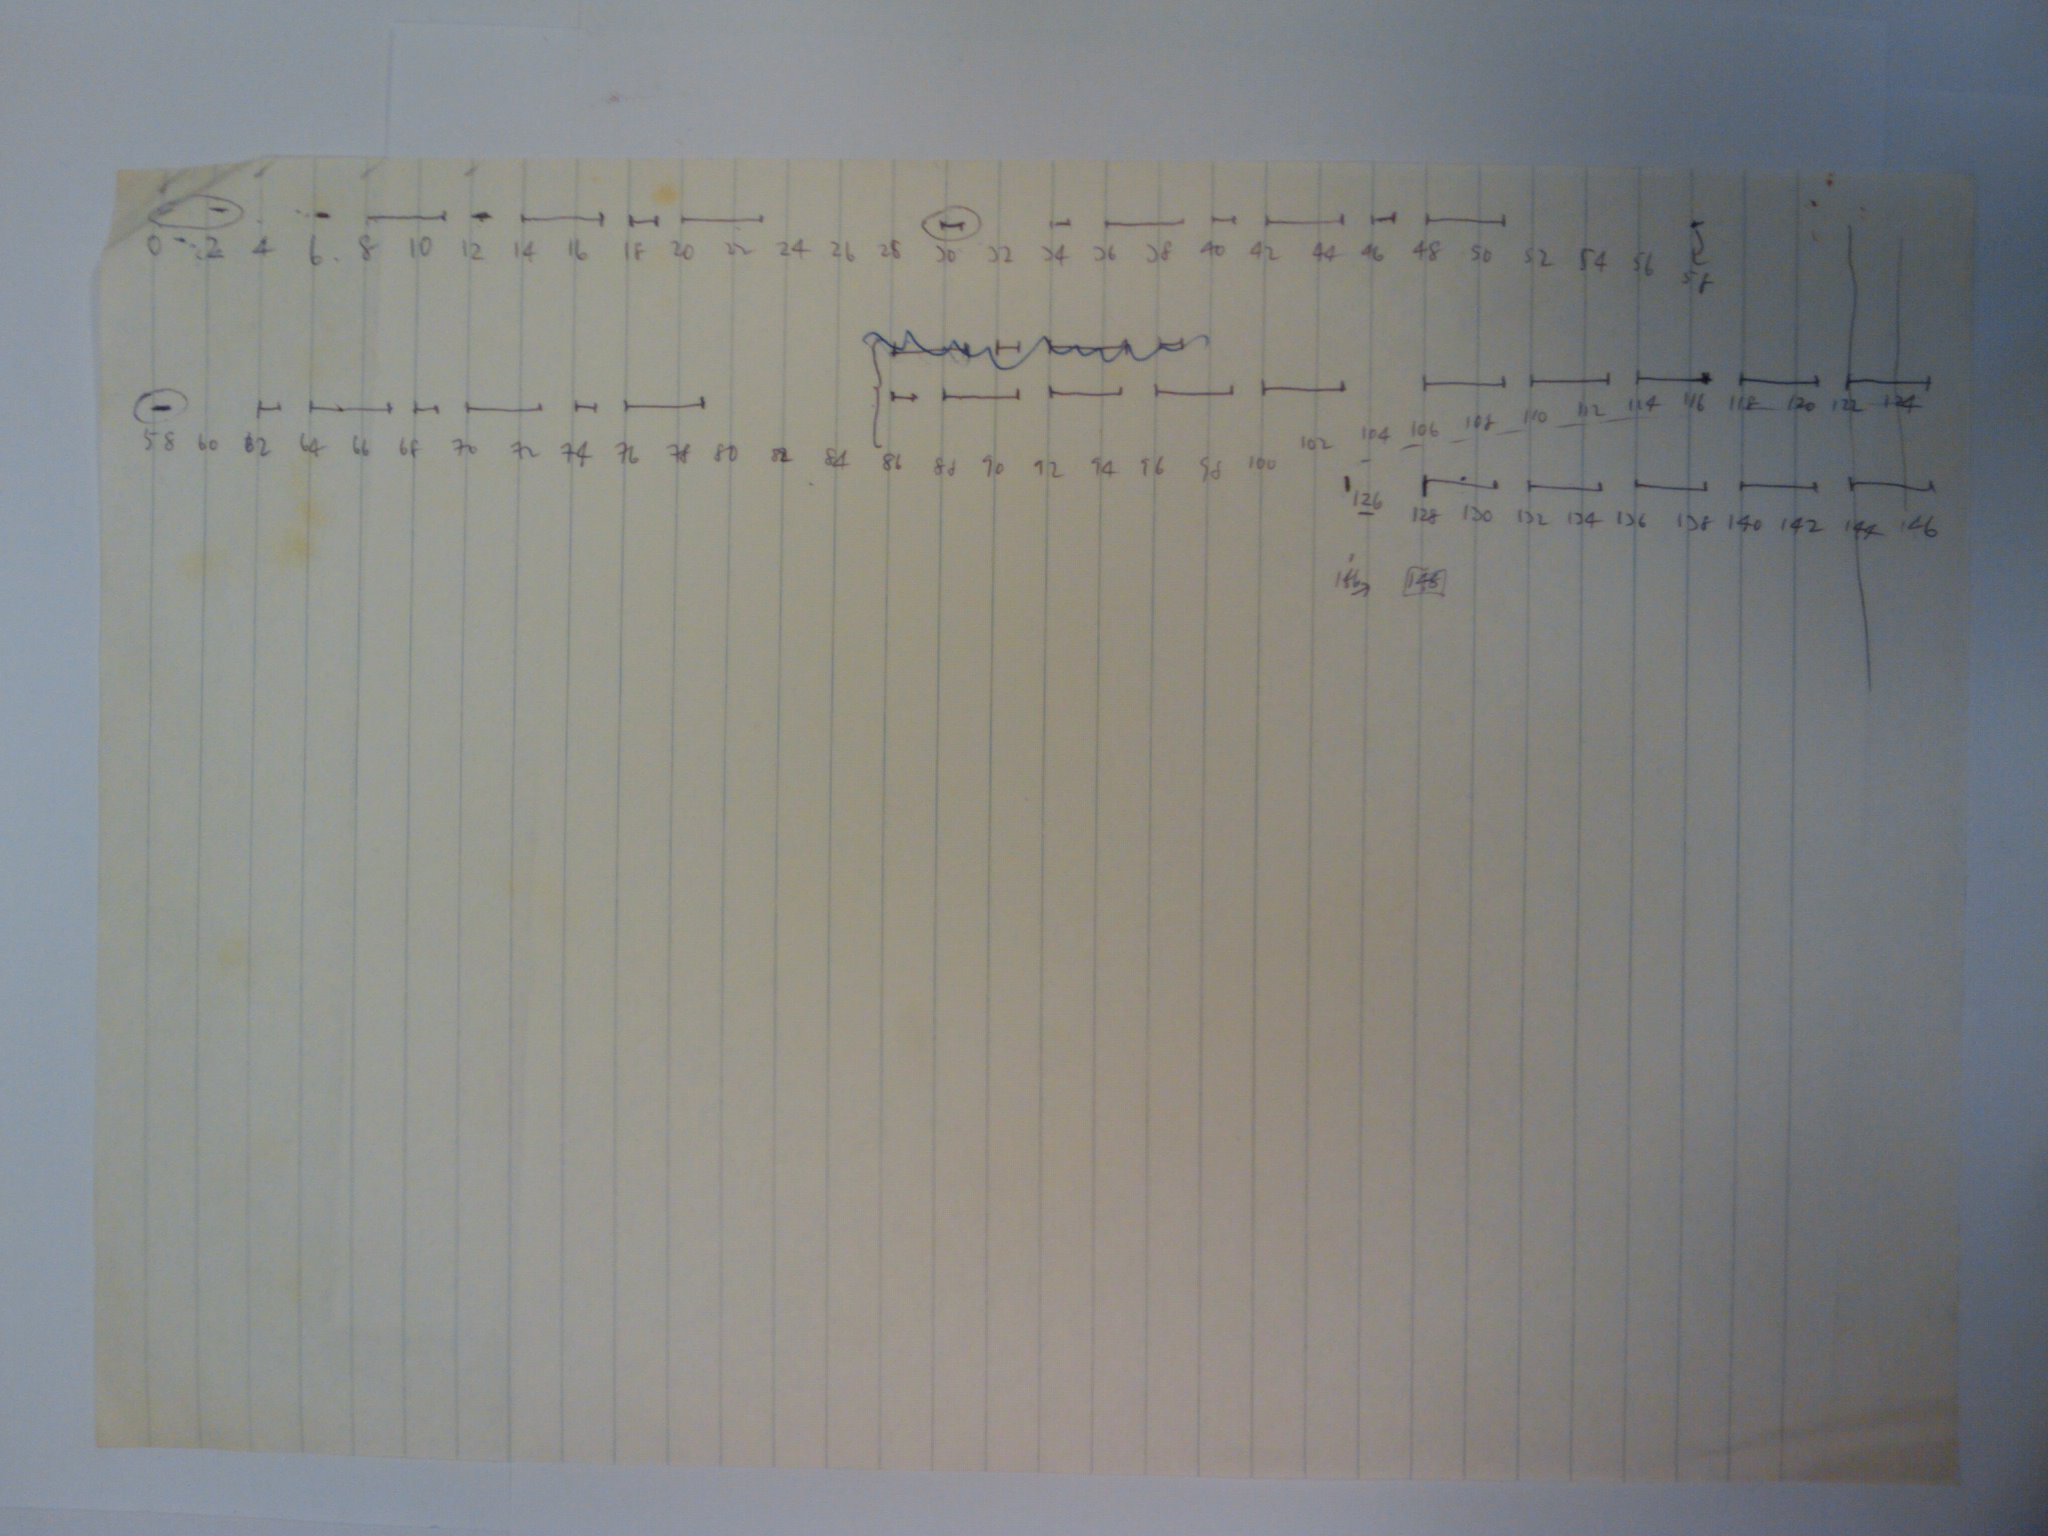 0 2 4 6 8 10 12 14 16 18 20 22 24 26 28 30 32 34 36 38 40 42 44 46 48 50 52 54 56 58
58 60 62 64 66 68 70 72 74 76 78 80 82 84 86 88 90 92 94 96 98 100 102 104 106 108 110 112 114 116 118 120 122 124
126 128 130 132 134 136 138 140 142 144 146
148